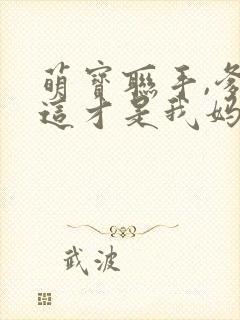 萌寶聯手,爹
這才是我媽
武波